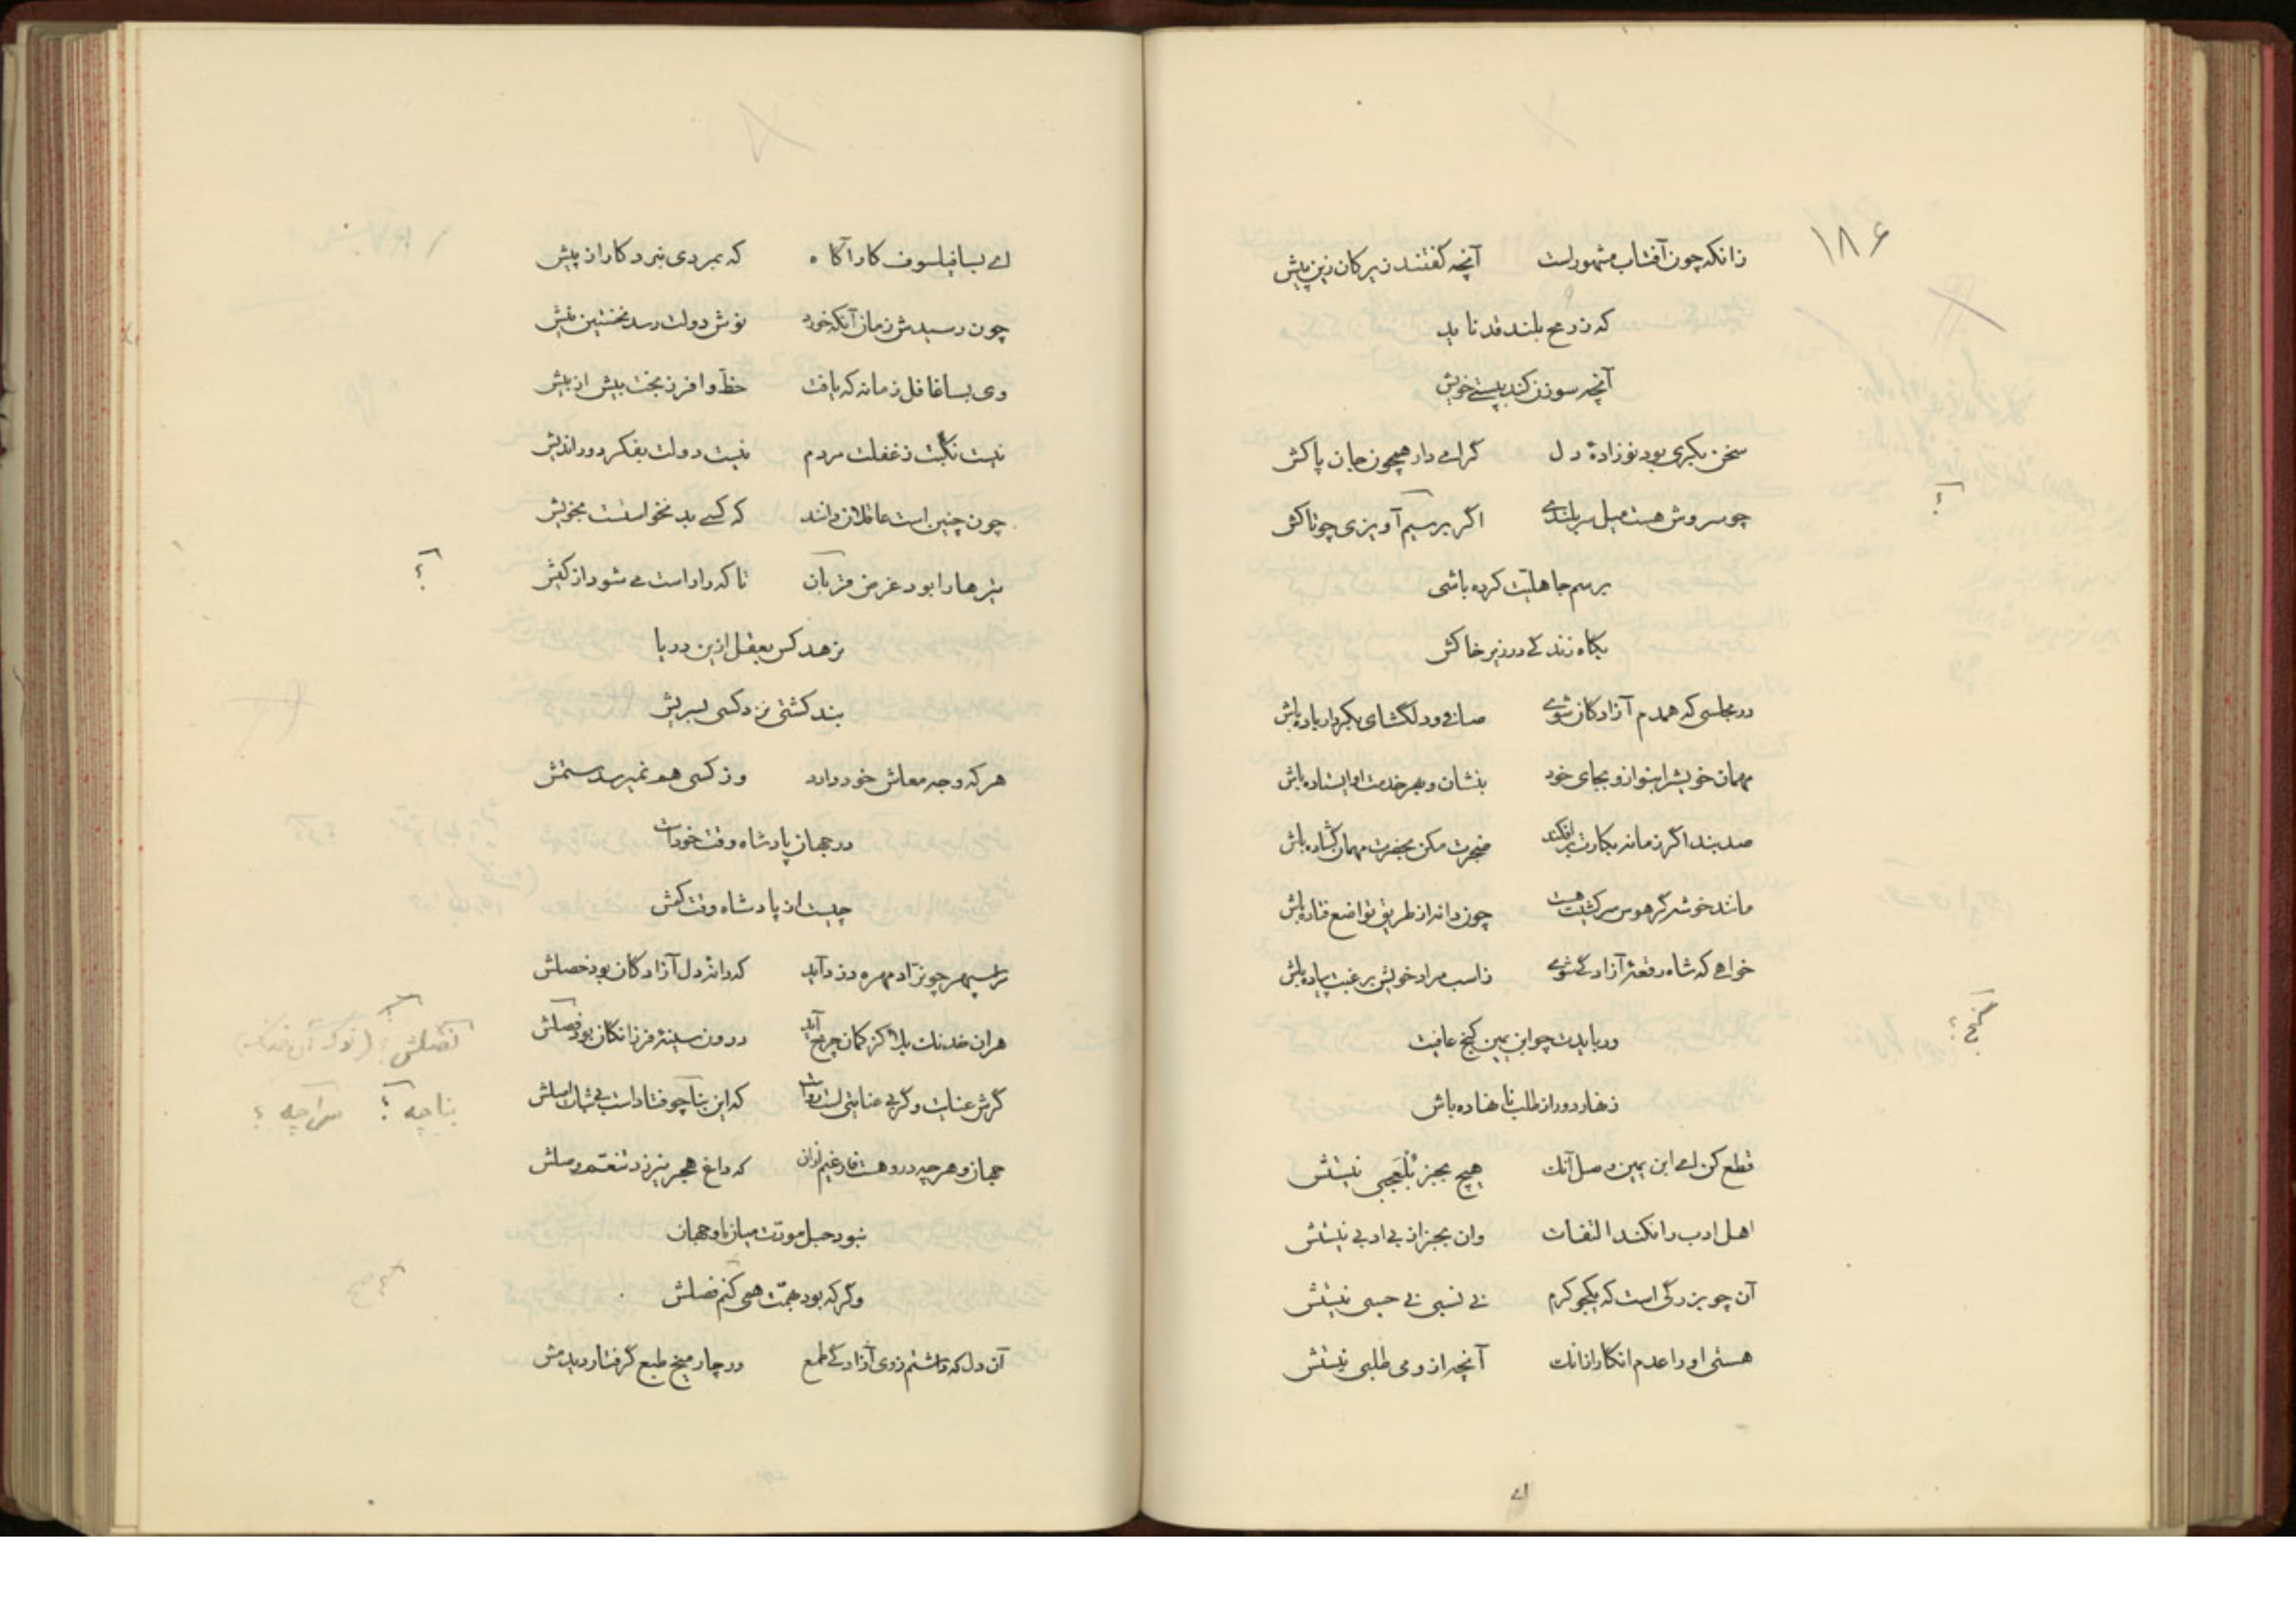 ۱۸۶
زانکه چون آفتاب مشهور است آنچه گفتند زیرکان زین پیش
که ز رمح بلند قد ناید
آنچه سوزن کند بپستی خویش
سخن بکری بود نوزادهٔ دل گرامی دار همچون جان پاکش
چو سروش هست میل سربلندی اگر بر سیم آویزی چو تاکش
؟
برسم جاهلیت کرده باشی
بگاه زندگی در زیر خاکش
در مجلسی که همدم آزادگان شوی صافی و دلگشای بکردار باده باش
مهمان خویش را بنواز و بجای خود بنشان و بهر خدمت او ایستاده باش
صد بند اگر زمانه بکارت برافکند ضجرت مکن بحضرت مهمان گشاده باش
مانند خوشه گر هوس سرکشیت هست چون دانه از طریق تواضع فتاده باش
خواهی که شاه رقعهٔ آزادگی شوی ز اسب مراد خویش برغبت پیاده باش
ور بایدت چو ابن یمین کنج عافیت
گنج؟
زنهار دور از طلب نانهاده باش
قطع کن ای ابن یمین وصل آنک هیچ بجز بُلعَجبی نیستش
اهل ادب را نکند التفات وان بجز از بی ادبی نیستش
آن چو بزرگی است که یکجو کرم نی نسبی نی حسبی نیستش
هستی او را عدم انگار از آنک آنچه ازو می طلبی نیستش
ای
ای بسا فیلسوف کارآگاه که بمردی نبرد کار از پیش
چون رسیدش زمان آنکه خورد نوش دولت رسد نخستین نیش
وی بسا غافل زمانه که یافت حظّ وافر ز بخت بیش از بیش
نیست نکبت ز غفلت مردم نیست دولت بفکر دوراندیش
چون چنین است عاقلان دانند که کسی بد نخواست بخویش
تیرها را بود غرض قربان تا که را راست می شود از کیش
؟
نرهد کس بعقل ازین دریا
بند کشتی نزد کسی بسریش
هر که وجه معاش خود دارد وز کسی هم نمیرسد ستمش
در جهان پادشاه وقت خود است
چیست از پادشاه وقت کمش
تراسپهر چو نرّاد مهره دزد آید که دانه دل آزادگان بود خصلش
هران خدنگ بلا کز کمان چرخ آید درون سینهٔ فرزانگان بود فصلش
گرش عنایت وگر بی عنایتی است رواست که این بنا چو فتادست بی ثبات اصلش
بناچه؟ سراچه؟
جهان و هرچه دروهست فارغیم ازان که داغ هجر نیرزد تنعّم وصلش
نبود حبل مودّت میان ما و جهان
وگر که بود بهمّت همی کنم فصلش
آن دل که داشتم ز وی آزادگی طمع در چار میخ طبع گرفتار دیدمش